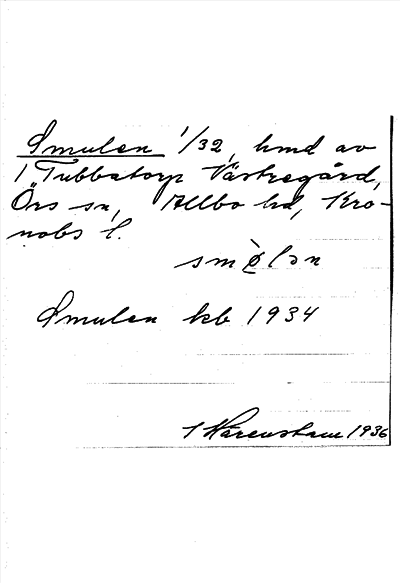 Smulen 1/32, hmd av
1 Tubbatorp Västregård,
Örs sn, Allbo hd, Kro-
nobs l.
smø̀lən
Smulen kb 1934
1936